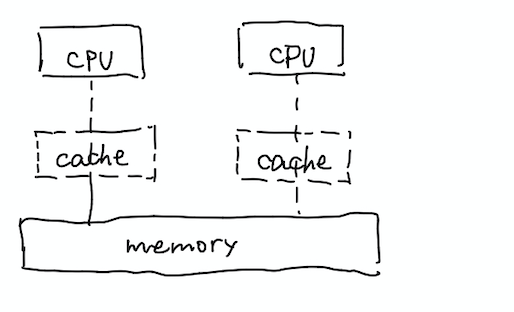 CPU
CPU
cache
cache
memory